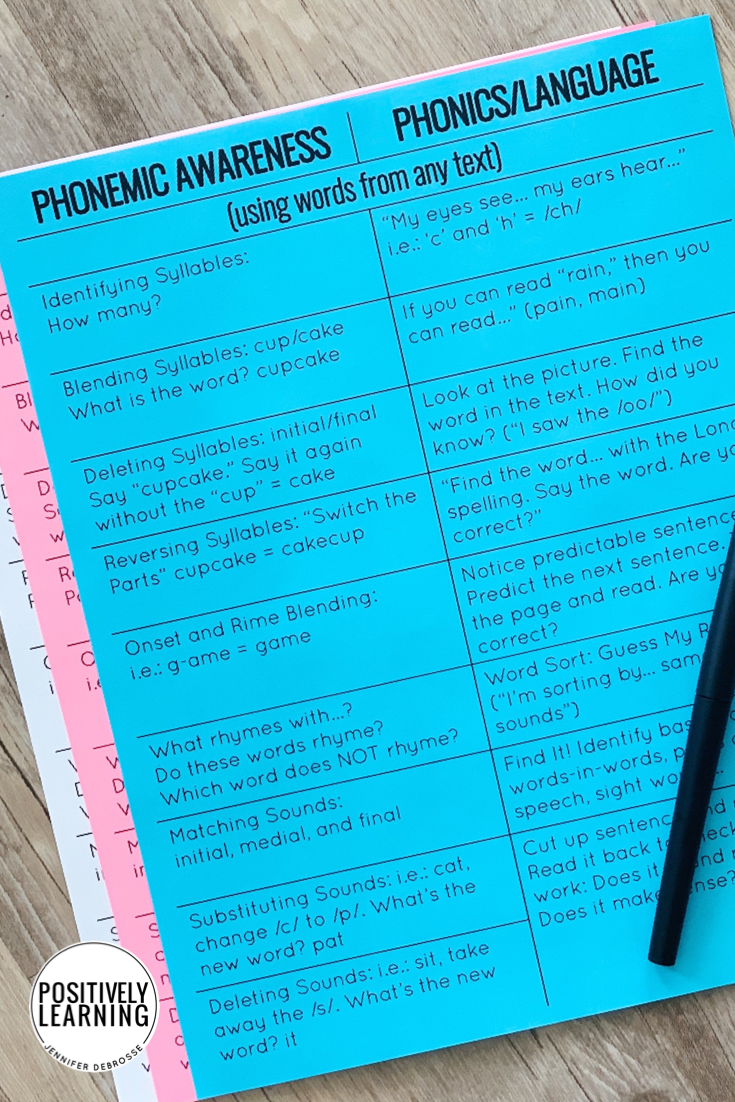 PHONEMIC AWARENESS
PHONICS/LANGUAGE
(using words from any text)
Identifying Syllables:
How many?
Blending Syllables: cup/cake
What is the word? cupcake
Deleting Syllables: initial/final
Say "cupcake." Say it again
without the "cup" = cake
Reversing Syllables: "Switch the
Parts" cupcake = cakecup
Onset and Rime Blending:
i.e.: g-ame = game
What rhymes with...?
Do these words rhyme?
Which word does NOT rhyme?
Matching Sounds:
initial, medial, and final
Substituting Sounds: i.e.: cat,
change /c/ to /p/. What's the
new word? pat
Deleting Sounds: i.e.: sit, take
away the /s/. What's the new
word? it
"My eyes see... my ears hear..."
i.e.: 'c' and 'h' = /ch/
If you can read "rain," then you
can read..." (pain, main)
Look at the picture. Find the
word in the text. How did you
know? ("I saw the /oo/")
"Find the word... with the Long
spelling. Say the word. Are
correct?"
Notice predictable sentence
Predict the next sentence.
the page and read. Are
correct?
Word Sort: Guess My
("I'm sorting by...
sounds")
Find It! Identify
words-in-words,
speech, sight
Cut up
Read it back
work: Does it
Does it
POSITIVELY
LEARNING
JENNIFER DEBROSSE